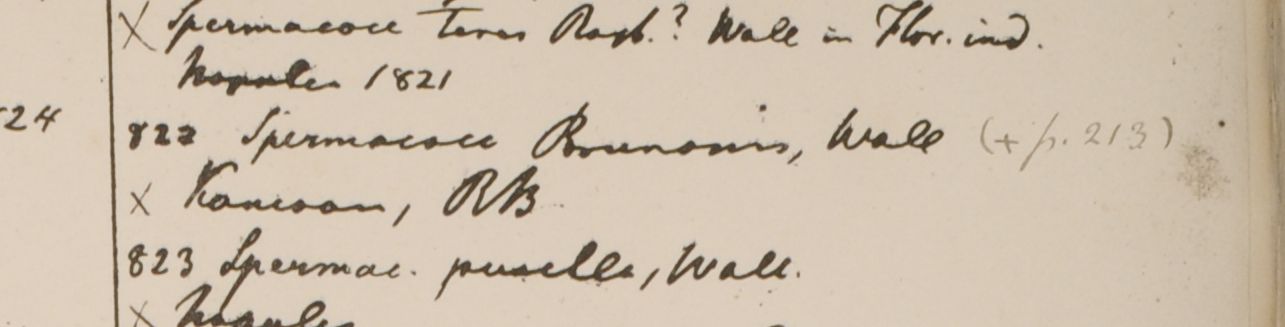 x Spermacoce teres Roxb.? Wall in Flor. ind.
Napalia 1821
24
822 Spermacoce Brunonis, Wall (+ p. 213)
x Kanosan, RB
823 Spermac. pusilla, Wall.
x Napalia